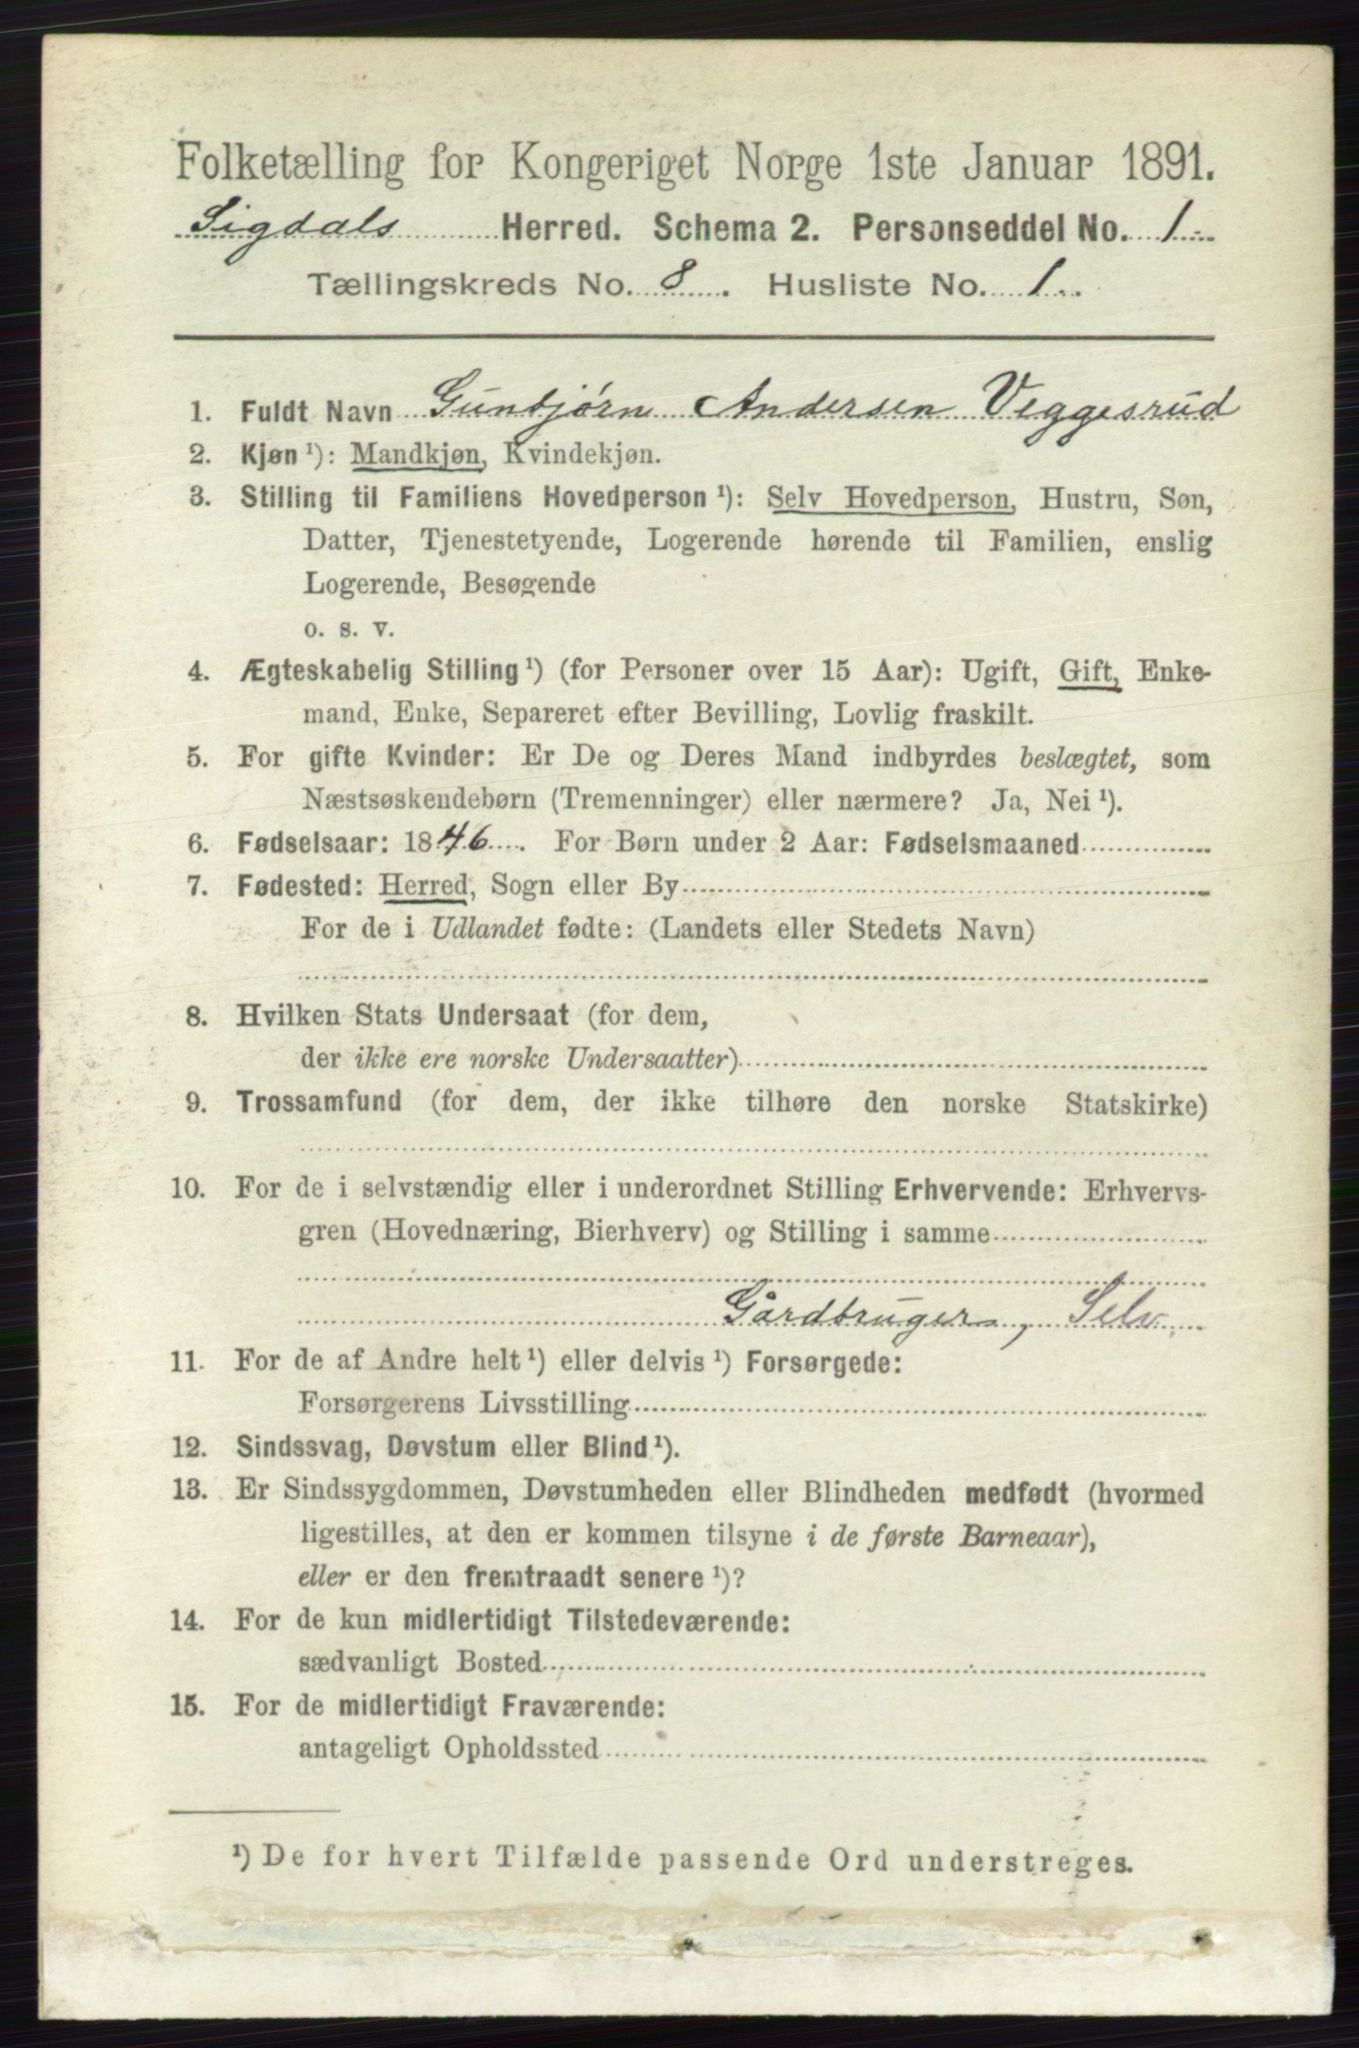 Folketælling for Kongeriget Norge 1ste Januar 1891.
Sigdals Herred. Schema 2. Personseddel No. 1
Tællingskreds No. 8. Husliste No. 1.
1. Fuldt Navn Gunbjørn Andersen Veggesrud
2. Kjøn ¹): Mandkjøn, Kvindekjøn.
3. Stilling til Familiens Hovedperson ¹): Selv Hovedperson, Hustru, Søn,
Datter, Tjenestetyende, Logerende hørende til Familien, enslig
Logerende, Besøgende
o. s. v.
4. Ægteskabelig Stilling ¹) (for Personer over 15 Aar): Ugift, Gift, Enke-
mand, Enke, Separeret efter Bevilling, Lovlig fraskilt.
5. For gifte Kvinder: Er De og Deres Mand indbyrdes beslægtet, som
Næstsøskendebørn (Tremenninger) eller nærmere? Ja, Nei ¹).
6. Fødselsaar: 1846. For Børn under 2 Aar: Fødselsmaaned
7. Fødested: Herred, Sogn eller By
For de i Udlandet fødte: (Landets eller Stedets Navn)
8. Hvilken Stats Undersaat (for dem,
der ikke ere norske Undersaatter)
9. Trossamfund (for dem, der ikke tilhøre den norske Statskirke)
10. For de i selvstændig eller i underordnet Stilling Erhvervende: Erhvervs-
gren (Hovednæring, Bierhverv) og Stilling i samme
Gårdbruger, Selv.
11. For de af Andre helt ¹) eller delvis ¹) Forsørgede:
Forsørgerens Livsstilling
12. Sindssvag, Døvstum eller Blind ¹).
13. Er Sindssygdommen, Døvstumheden eller Blindheden medfødt (hvormed
ligestilles, at den er kommen tilsyne i de første Barneaar),
eller er den fremtraadt senere ¹)?
14. For de kun midlertidigt Tilstedeværende:
sædvanligt Bosted
15. For de midlertidigt Fraværende:
antageligt Opholdssted
¹) De for hvert Tilfælde passende Ord understreges.